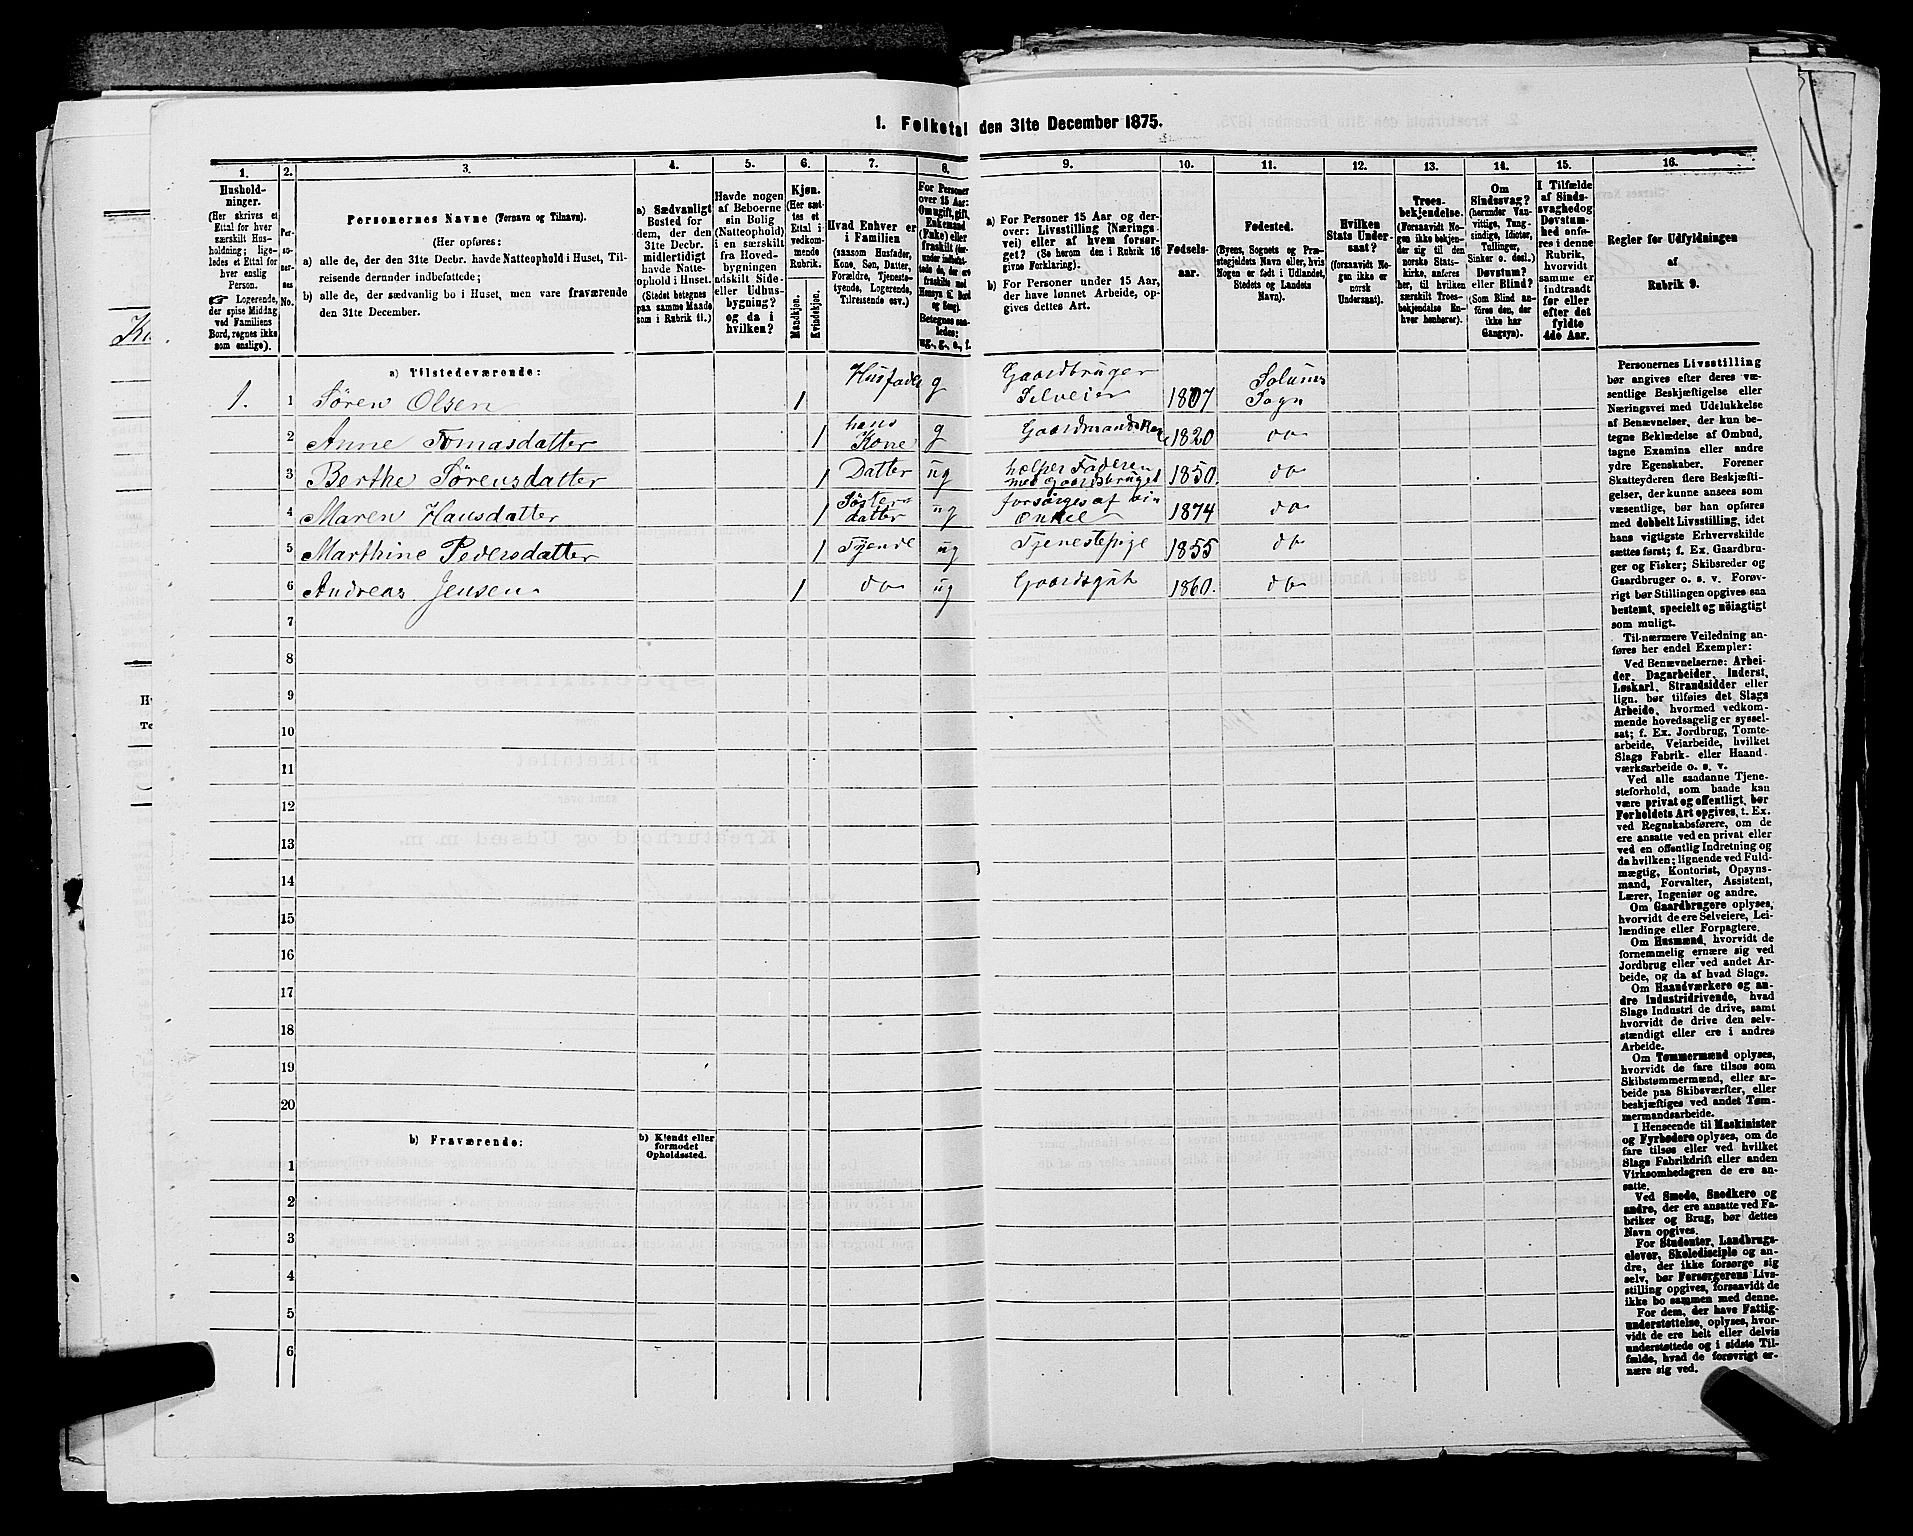 1. Folketal den 31te December 1875.
1.
Hushold-
ninger.
(Her skrives et
Ettal for hver
særskilt Hus-
holdning; lige-
ledes et Ettal for
hver enslig
Person.
☞ Logerende,
der spise Middag
ved Familiens
Bord, regnes ikke
som enslige).
2.
Per-
so-
ner-
nes
No.
3.
Personernes Navne (Fornavn og Tilnavn).
(Her opføres:
a) alle de, der den 31te Decbr. havde Natteophold i Huset, Til-
reisende derunder indbefattede;
b) alle de, der sædvanlig bo i Huset, men vare fraværende
den 31te December.
4.
a) Sædvanligt
Bosted for
dem, der den
31te Decbr.
midlertidigt
havde Natte-
ophold i Huset.
(Stedet betegnes
paa samme Maade
som i Rubrik 11.)
5.
Havde nogen
af Beboerne
sin Bolig
(Natteophold)
i en særskilt
fra Hoved-
bygningen
adskilt Side-
eller Udhus-
bygning?
og da i
hvilken?
6.
Kjøn.
(Her sæt-
tes et
Ettal i
vedkom-
mende
Rubrik.
Mandkjøn.
Kvindekjøn.
7.
Hvad Enhver er
i Familien
(saasom Husfader,
Kone, Søn, Datter,
Forældre, Tjeneste-
tyende, Logerende,
Tilreisende osv.)
8.
For Personer
over 15 Aar:
Om ugift, gift,
Enkemand
(Enke) eller
fraskilt (der-
under indbefat-
tede de, der ere
fraskilte med
Hensyn til Bord
og Seng).
Betegnes saa-
ledes:
ug., g., e., f.
9.
a) For Personer 15 Aar og der-
over: Livsstilling (Nærings-
vei) eller af hvem forsør-
get? (Se herom den i Rubrik 16
givne Forklaring).
b) For Personer under 15 Aar,
der have lønnet Arbeide, op-
gives dettes Art.
10.
Fødsels-
aar.
11.
Fødested.
(Byens, Sognets og Præ-
stegjeldets Navn eller, hvis
Nogen er født i Udlandet,
Stedets og Landets
Navn).
12.
Hvilken
Stats Under-
saat?
(forsaavidt No-
gen ikke er
norsk
Undersaat).
13.
Troes-
bekjendelse.
(Forsaavidt No-
gen ikke bekjen-
der sig til den
norske Stats-
kirke, anføres
her, til hvilken
særskilt Troes-
bekjendelse En-
hver henhører).
14.
Om
Sindssvag?
(herunder Van-
vittige, Tung-
sindige, Idioter,
Tullinger,
Sinker o. desl.)
Døvstum?
eller Blind?
(Som Blind an-
føres den, der
ikke har
Gangsyn).
15.
I Tilfælde
af Sinds-
svaghed og
Døvstum-
hed anfø-
res i denne
Rubrik,
hvorvidt
samme er
indtraadt
før eller
efter det
fyldte
4de Aar.
16.
Regler for Udfyldningen
af
Rubrik 9.
a) Tilstedeværende:
1. 1 Søren Olsen 1 Husfader g Gaardbruger Selveier 1807 Solums Sogn
2 Anne Tomasdatter 1 hans Kone g Gaardmands 1820 do
3 Berthe Sørensdatter 1 Datter ug helper Faderen med Gaardsbruget 1850. do
4 Maren Hansdatter 1 Søster datter ug forsørges af sin Onkel 1874 do
5 Marthine Pedersdatter 1 Tjende ug Tjenestepige 1855 do
6 Andreas Jensen 1 do ug Gaardsgut 1860. do
7
8
9
10
11
12
13
14
15
16
17
18
19
20
b) Fraværende:
b) Kjendt eller
formodet
Opholdssted.
1
2
3
4
5
6
Personernes Livsstilling
bør angives efter deres væ-
sentlige Beskjæftigelse eller
Næringsvei med Udelukkelse
af Benævnelser, der kun be-
tegne Beklædelse af Ombud,
tagne Examina eller andre
ydre Egenskaber. Forener
Skatteyderen flere Beskjæfti-
gelser, der kunne ansees som
væsentlige, bør han opføres
med dobbelt Livsstilling, idet
hans vigtigste Erhvervskilde
sættes først; f. Ex. Gaardbru-
ger og Fisker; Skibsreder og
Gaardbruger o. s. v. Forøv-
rigt bør Stillingen opgives saa
bestemt, specielt og nøiagtigt
som muligt.
Til nærmere Veiledning an-
føres her endel Exempler:
Ved Benævnelserne: Arbei-
der, Dagarbeider, Inderst,
Løskarl, Strandsidder eller
lign. bør tilføies det Slags
Arbeide, hvormed vedkom-
mende hovedsagelig er syssel-
sat; f. Ex. Jordbrug, Tomte-
arbeide, Veiarbeide, hvilket
Slags Fabrik- eller Haand-
værksarbeide o. s. v.
Ved alle saadanne Tjene-
steforhold, som baade kan
være privat og offentligt, bør
Forholdets Art opgives, t. Ex.
ved Regnskabsførere, om de
ere ansatte ved en privat eller
ved en offentlig Indretning og
da hvilken; lignende ved Fuld-
mægtig, Kontorist, Opsyns-
mand, Forvalter, Assistent,
Lærer, Ingeniør og andre.
Om Gaardbrugere oplyses,
hvorvidt de ere Selveiere, Lei-
lændinge eller Forpagtere.
Om Husmænd, hvorvidt de
fornemmelig ernære sig ved
Jordbrug eller ved andet Ar-
beide, og da af hvad Slags.
Om Haandværkere og an-
dre Industridrivende, hvad
Slags Industri de drive, samt
hvorvidt de drive den selv-
stændigt eller ere i andres
Arbeide.
Om Tømmermænd oplyses,
hvorvidt de fare tilsøs som
Skibstømmermænd, eller ar-
beide paa Skibsværfter, eller
beskjæftiges ved andet Tøm-
mermandsarbeide.
I Henseende til Maskinister
og Fyrbødere oplyses, om de
fare tilsøs eller ved hvilket
Slags Fabrikdrift eller anden
Virksomhedsgren de ere an-
satte.
Ved Smede, Snedkere og
andre, der ere ansatte ved Fa-
briker og Brug, bør dettes
Navn opgives.
For Studenter, Landbrugs-
elever, Skoledisciple og an-
dre, der ikke forsørge sig
selv, bør Forsørgerens Livs-
stilling opgives, forsaavidt de
ikke bo sammen med denne.
For dem, der have Fattig-
understøttelse, oplyses, hvor-
vidt de ere helt eller delvis
understøttede og i sidste Til-
fælde, hvad de forøvrigt er-
nære sig ved.